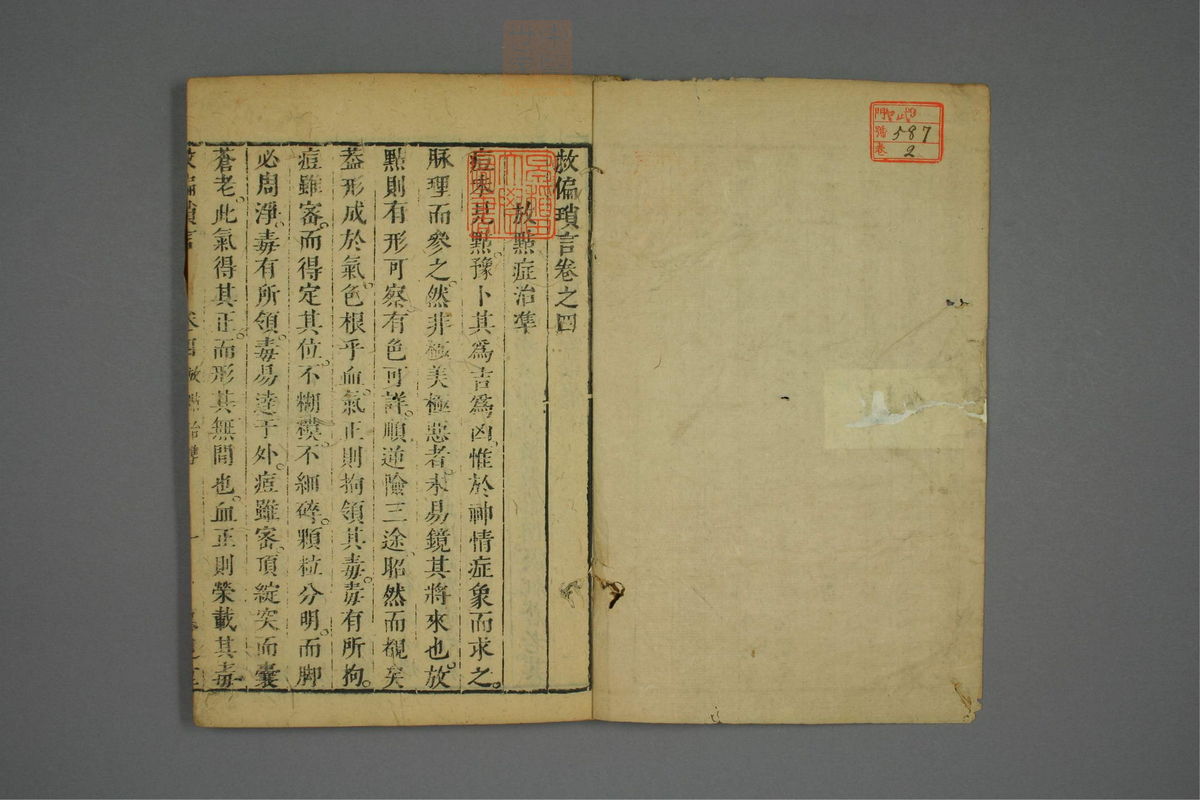 救偏瑣言卷之四
放點症治準
痘未見點。豫卜其爲吉爲凶。惟於神情症象而求之。
脉理而參之。然非極美極惡者。未易鏡其將來也。放
點則有形可察。有色可詳。順逆險三途。昭然而覩矣
葢形成於氣。色根乎血。氣正則拘領其毒。毒有所拘。
痘雖密。而得定其位。不糊模。不細碎。顆粒分明。而脚
必周淨。毒有所領。毒易達于外。痘雖密。頂綻突而囊
蒼老。此氣得其正。而形其無間也。血正則榮載其毒
門
號 587
卷 2